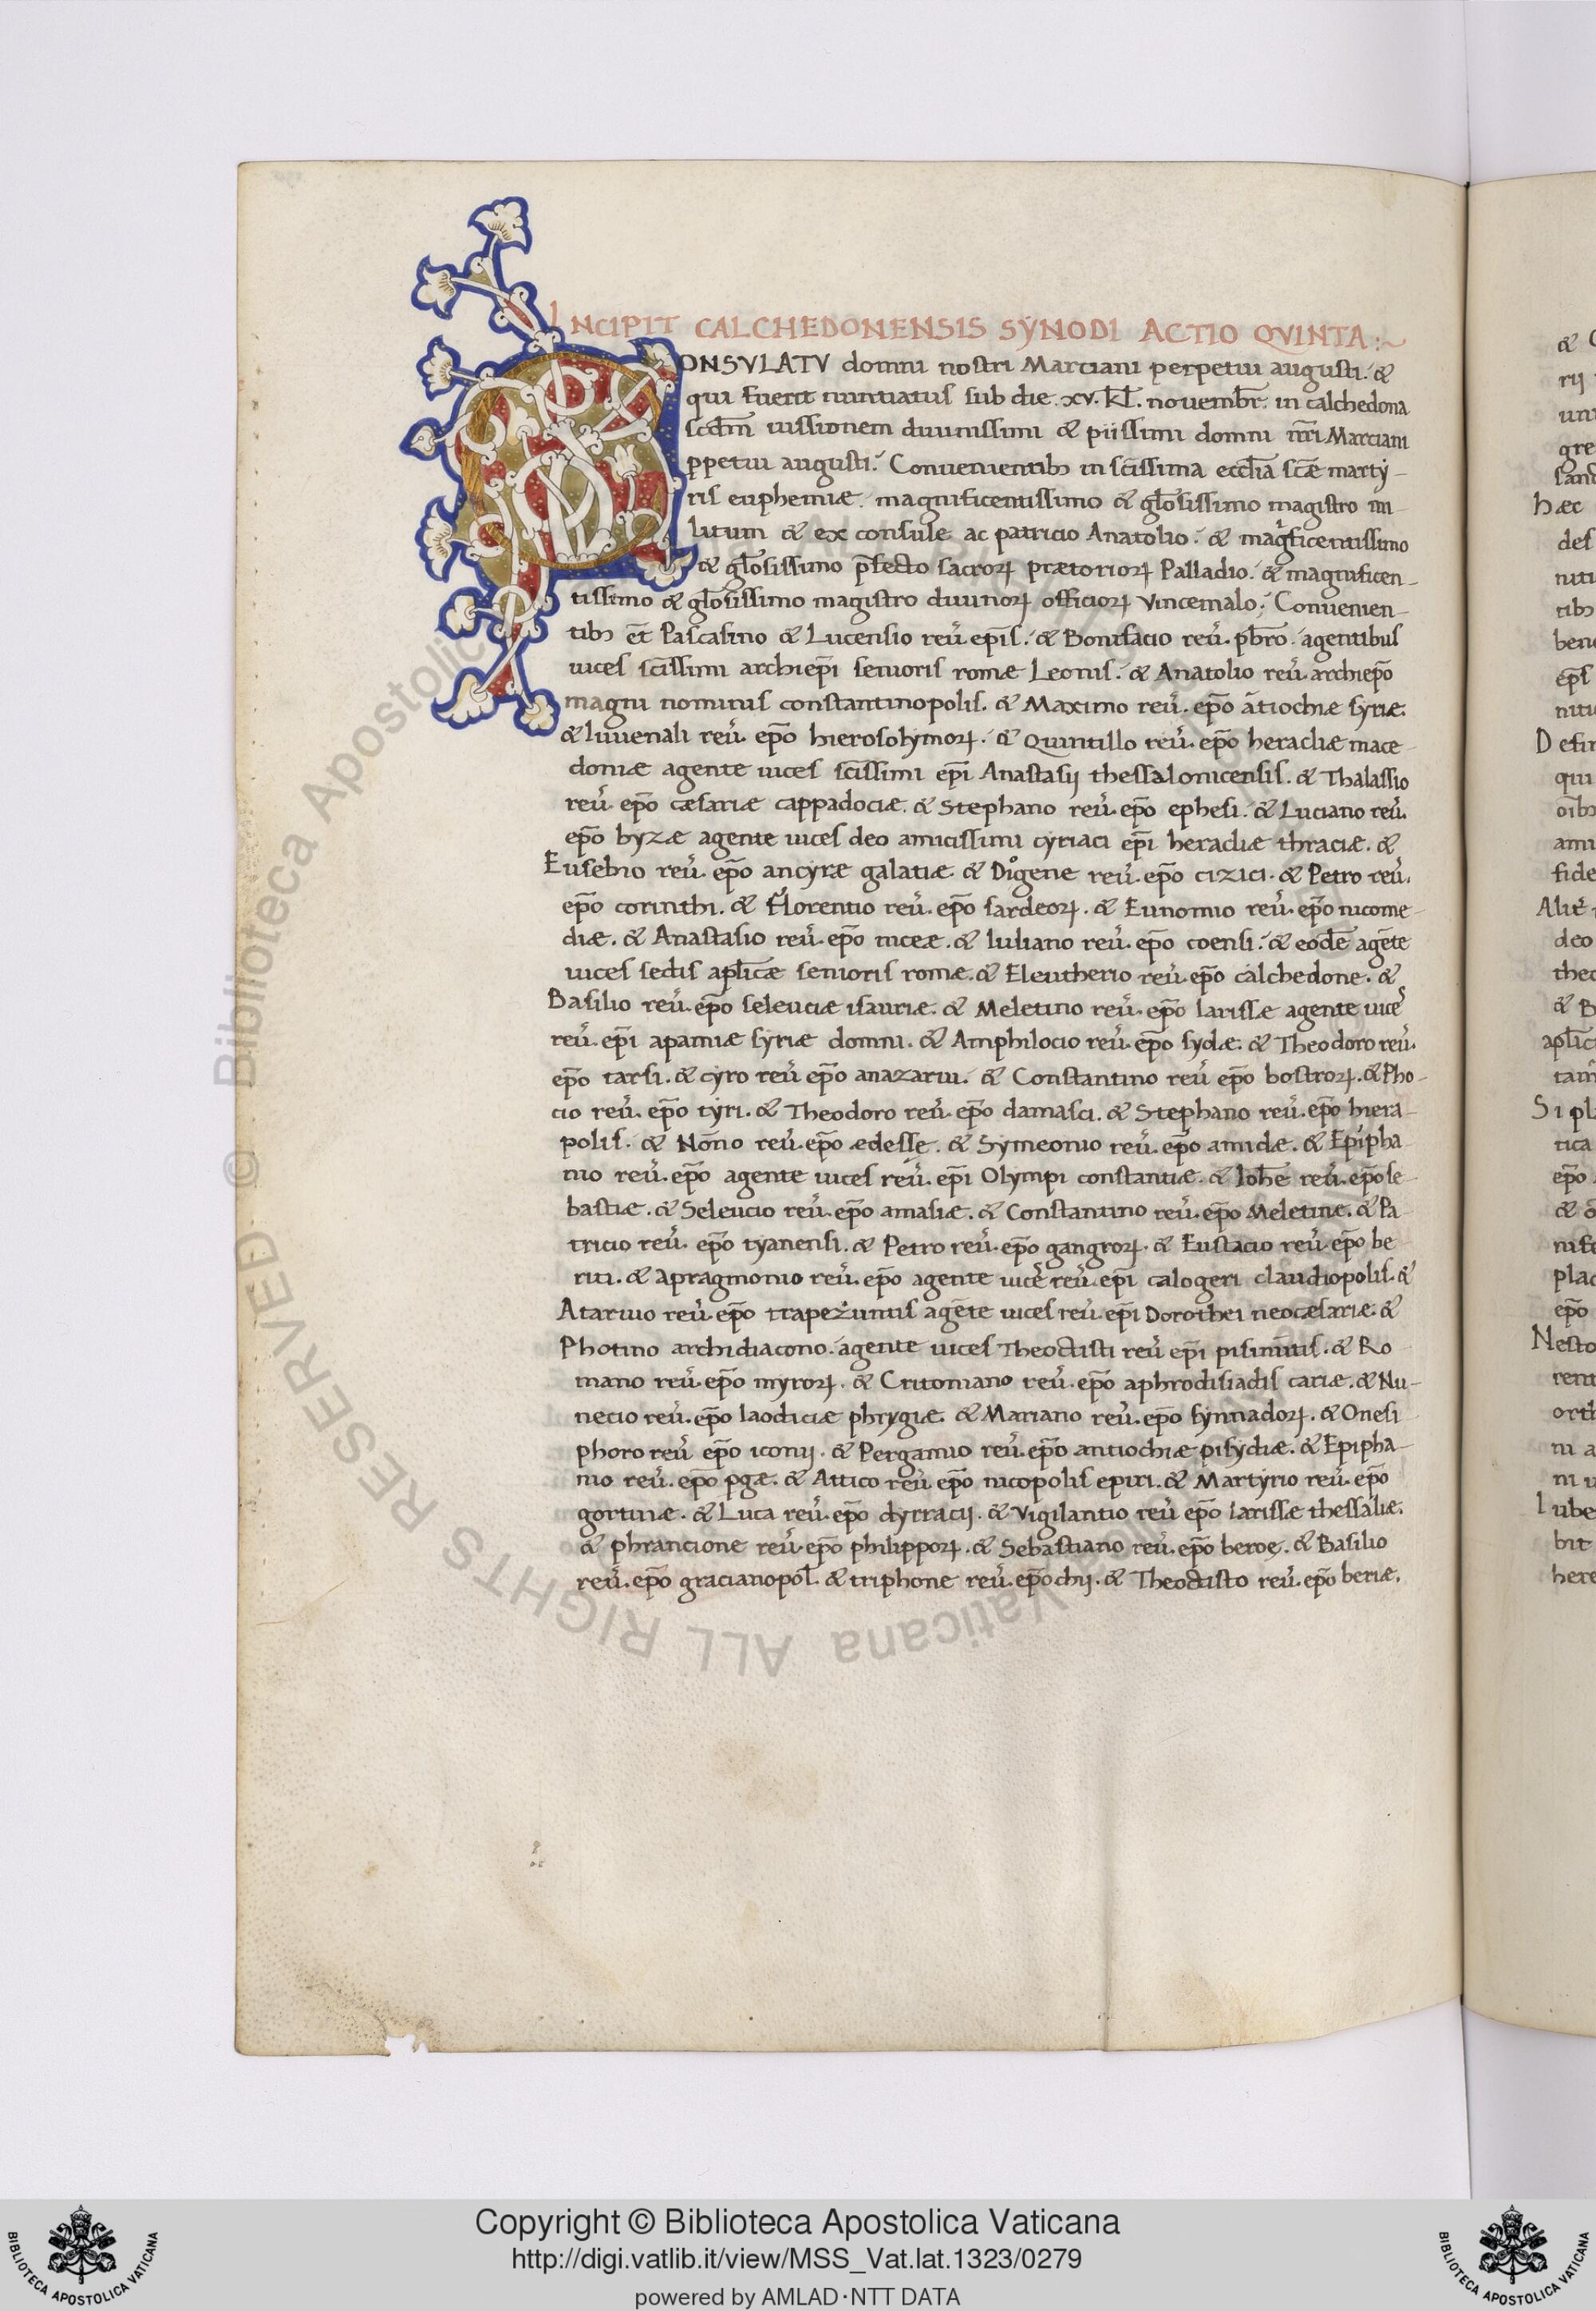 INCIPIT CALCHEDONENSIS SYNODI ACTIO QVINTA :~
CONSVLATV domni nostri Marciani perpetui augusti. &
qui fuerit nuntiatus sub die. xv. kl̅. novembr̅. in calchedona
scd̅m iussionem diuinissimi & piissimi domni nr̅i Marciani
ꝑpetui augusti. Conuenientibꝫ in sc̅issima eccl̅ia sc̅æ marty-
ris euphemiæ. magnificentissimo & gl̅osissimo magistro mi-
litum & ex consule ac patricio Anatolio. & mag̅ficentissimo
& gl̅osissimo p̅fecto sacroꝝ prætorioꝝ Palladio. & magnificen-
tissimo & gl̅osissimo magistro diuinoꝝ officioꝝ vincemalo. Conuenien-
tibꝫ et̅ Pascasino & Lucensio reu̅ ep̅is. & Bonifacio reu̅. pb̅ro. agentibus
uices sc̅issimi archiep̅i senioris romæ Leonis. & Anatolio reu̅. archiep̅o
magni nominis constantinopolis. & Maximo reu̅. ep̅o a̅tiochiæ syriæ.
& Iuuenali reu̅. ep̅o hierosolymoꝝ. & Quintillo reu̅. ep̅o heracliæ mace-
doniæ agente uices sc̅issimi ep̅i Anastasij thessalonicensis. & Thalassio
reu̅. ep̅o cæsariæ cappadociæ. & Stephano reu̅. ep̅o ephesi. & Luciano reu̅.
ep̅o byzæ agente uices deo amicissimi cyriaci ep̅i heracliæ thraciæ. &
Eusebio reu̅. ep̅o ancyræ galatiæ & Diogene reu̅. ep̅o cizici. & Petro reu̅.
ep̅o corinthi. & Florentio reu̅. ep̅o sardeoꝝ. & Eunomio reu̅. ep̅o nicome-
diæ. & Anastasio reu̅. ep̅o niceæ. & Iuliano reu̅. ep̅o coensi. & eode̅ age̅te
uices sedis apl̅icæ senioris romæ. & Eleutherio reu̅. ep̅o calchedone. &
Basilio reu̅. ep̅o seleuciæ isauriæ. & Meletino reu̅. ep̅o larissæ agente uices
reu̅. ep̅i apamiæ syriæ domni. & Amphilocio reu̅. ep̅o sydæ. & Theodoro reu̅.
ep̅o tarsi. & cyro reu̅ ep̅o anazarui. & Constantino reu̅ ep̅o bostroꝝ. & Pho-
cio reu̅. ep̅o tyri. & Theodoro reu̅. ep̅o damasci. & Stephano reu̅. ep̅o hiera-
polis. & No̅no reu̅. ep̅o ædesse. & Symeonio reu̅. ep̅o amidæ. & Epipha-
nio reu̅. ep̅o agente uices reu̅. ep̅i Olympi constantiæ. & Ioh̅e reu̅. ep̅o se-
bastiæ. & Seleucio reu̅. ep̅o amasiæ. & Constantino reu̅. ep̅o Meletinæ. & Pa-
tricio reu̅. ep̅o tyanensi. & Petro reu̅. ep̅o gangroꝝ. & Eustacio reu̅. ep̅o be-
riti. & apragmonio reu̅. ep̅o agente uices reu̅. ep̅i calogeri claudiopolis. &
Ataruio reu̅. ep̅o trapezuntis age̅te uices reu̅. ep̅i Dorothei neocæsariæ. &
Photino archidiacono. agente uices Theoctisti reu̅ ep̅i pisinu̅tis. & Ro-
mano reu̅. ep̅o myroꝝ. & Critoniano reu̅. ep̅o aphrodisiadis cariæ. & Nu-
necio reu̅. ep̅o laodiciæ phrygiæ. & Mariano reu̅. ep̅o synnadoꝝ. & Onesi-
phoro reu̅ ep̅o iconij. & Pergamio reu̅. ep̅o antiochiæ pisydiæ. & Epipha-
nio reu̅. ep̅o ꝑgæ. & Attico reu̅ ep̅o nicopolis epiri. & Martyrio reu̅. ep̅o
gortinæ. & Luca reu̅. ep̅o dyrracij. & vigilantio reu̅ ep̅o larissæ thessaliæ.
& phrancione reu̅. ep̅o philippoꝝ. & Sebastiano reu̅. ep̅o beroę. & Basilio
reu̅. ep̅o gracianopol̅. & triphone reu̅. ep̅o chij. & Theoctisto reu̅. ep̅o beriæ.
© Biblioteca Apostolica Vaticana ALL RIGHTS RESERVED
Copyright © Biblioteca Apostolica Vaticana
http://digi.vatlib.it/view/MSS_Vat.lat.1323/0279
powered by AMLAD·NTT DATA
BIBLIOTECA APOSTOLICA VATICANA
BIBLIOTECA APOSTOLICA VATICANA